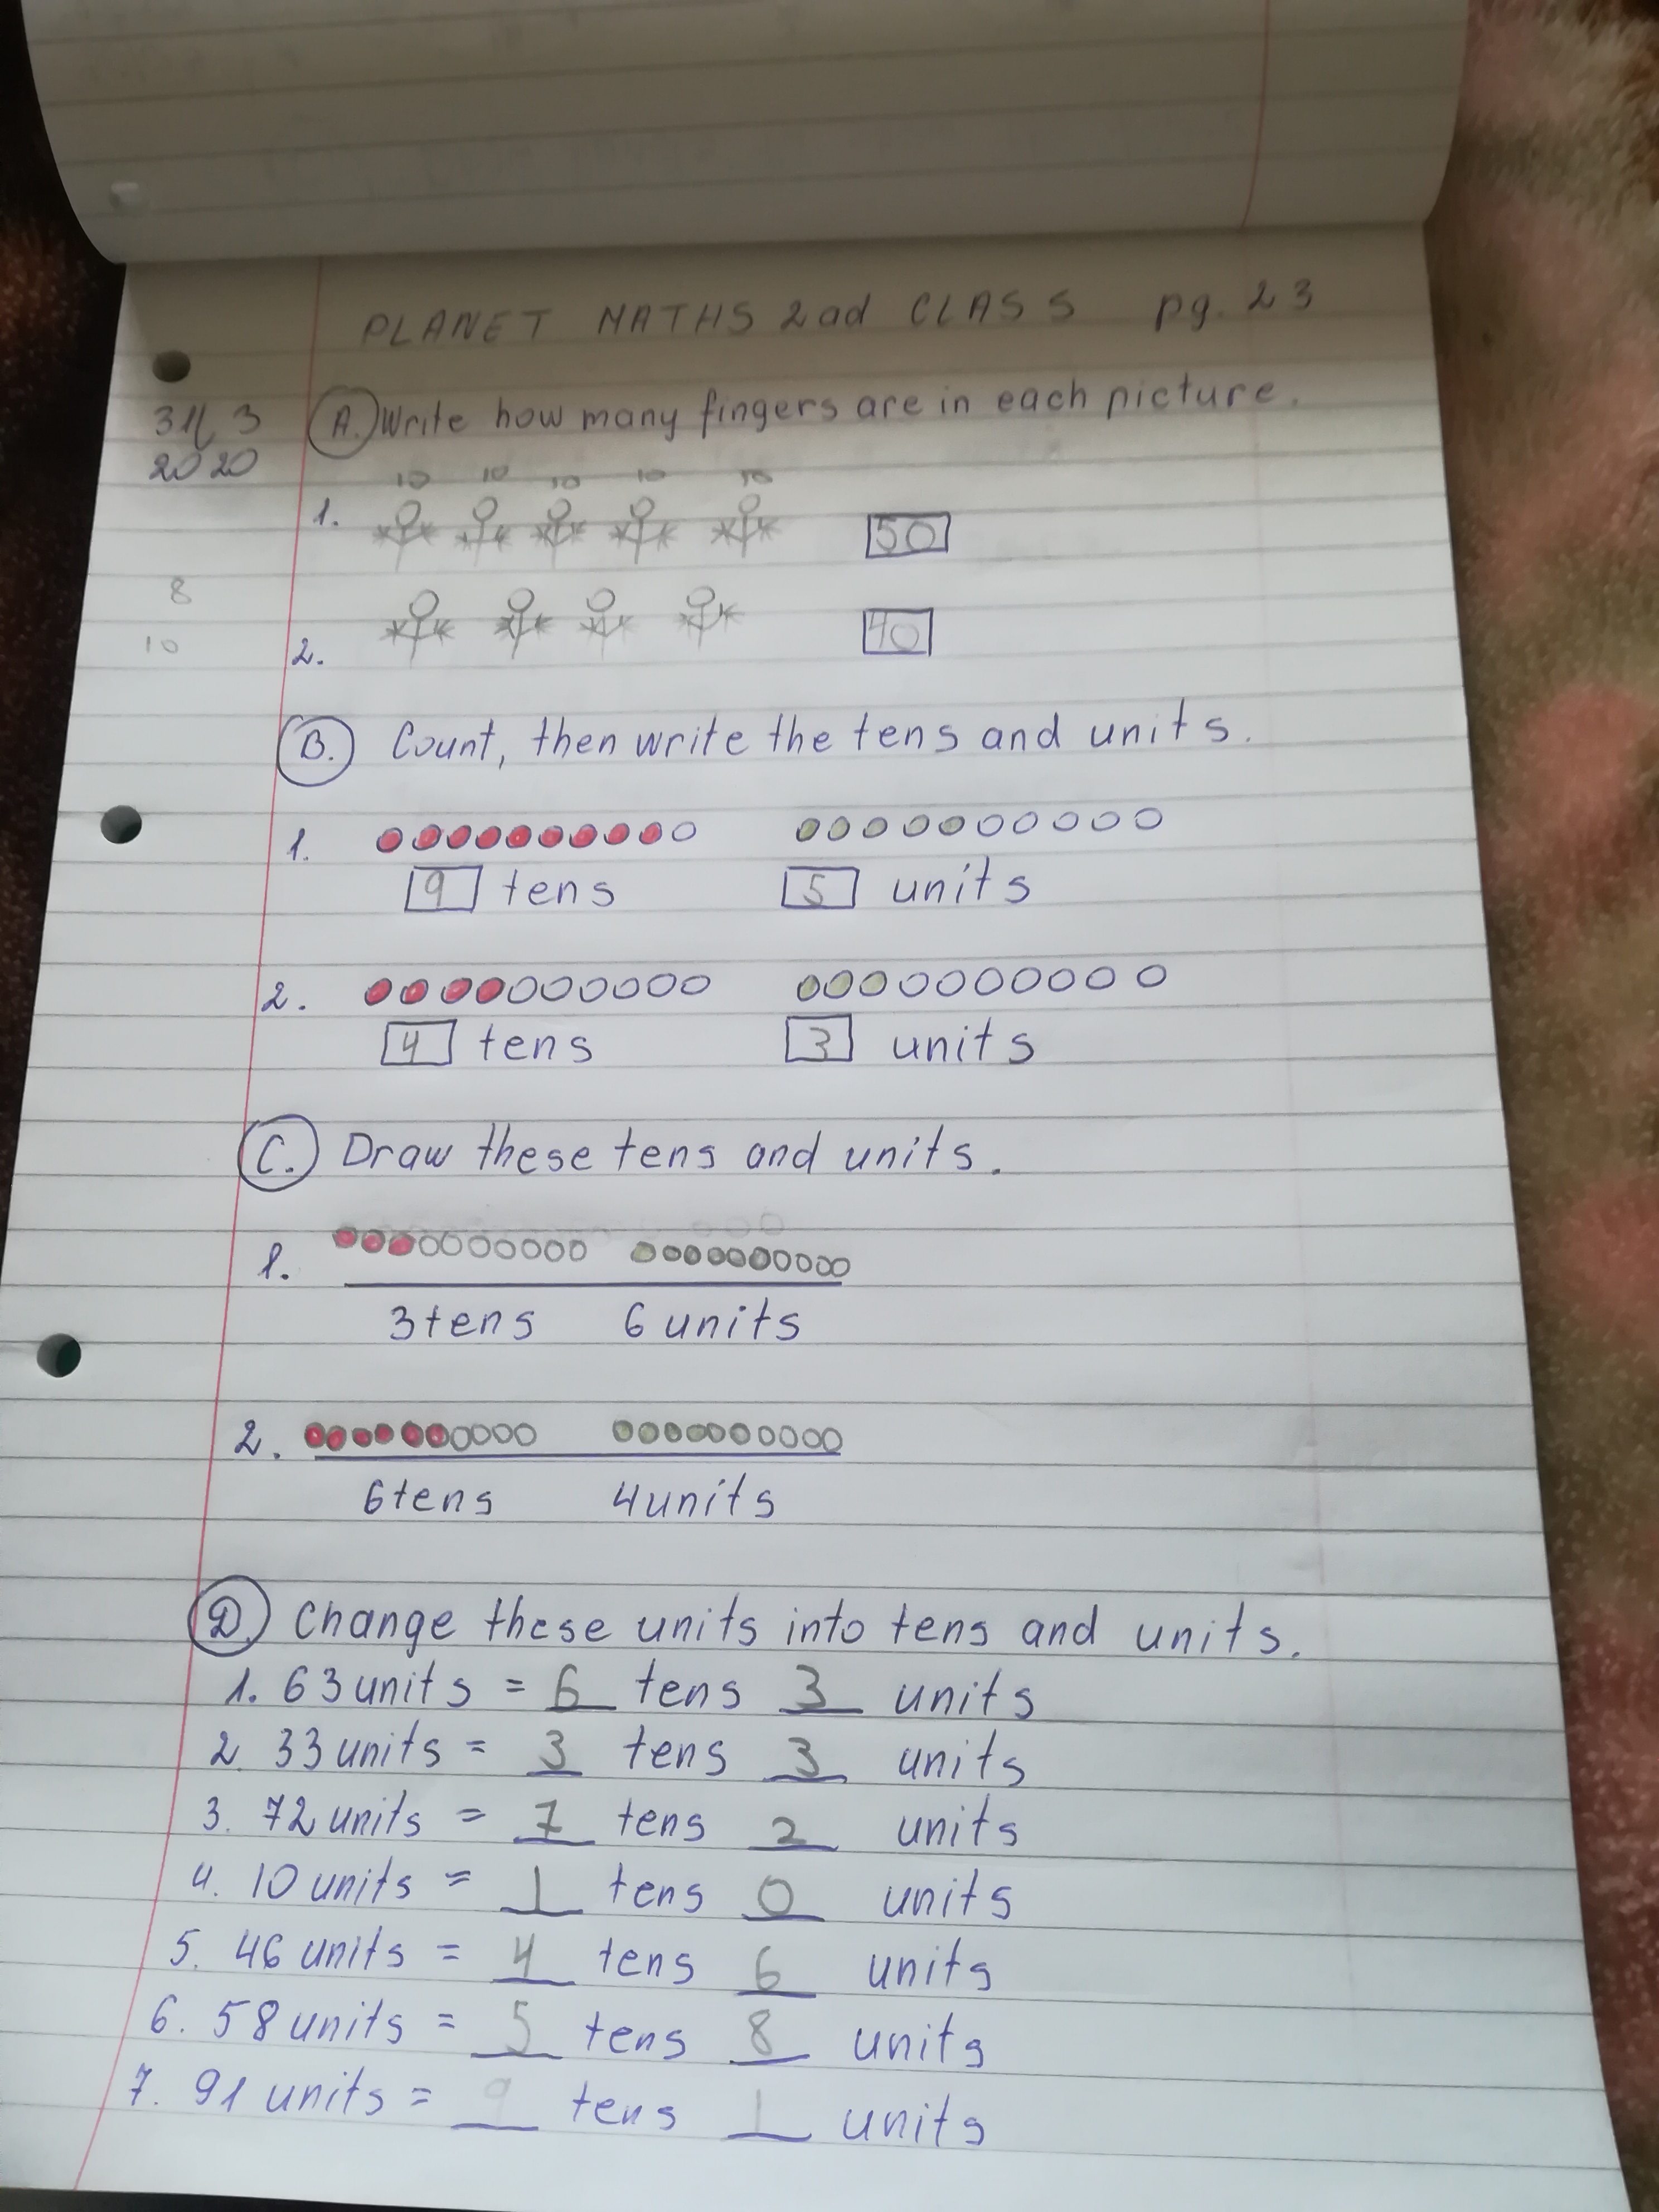 PLANET MATHS 2nd CLASS pg. 23
31/3
2020
A. Write how many fingers are in each picture.
10 10 10 10 10
1. 50
8
10
2. 40
B. Count, then write the tens and units.
1.
9 tens 5 units
2.
4 tens 3 units
C. Draw these tens and units.
1.
3 tens 6 units
2.
6 tens 4 units
D. Change these units into tens and units.
1. 63 units = 6 tens 3 units
2. 33 units = 3 tens 3 units
3. 72 units = 7 tens 2 units
4. 10 units = 1 tens 0 units
5. 46 units = 4 tens 6 units
6. 58 units = 5 tens 8 units
7. 91 units = 9 tens 1 units